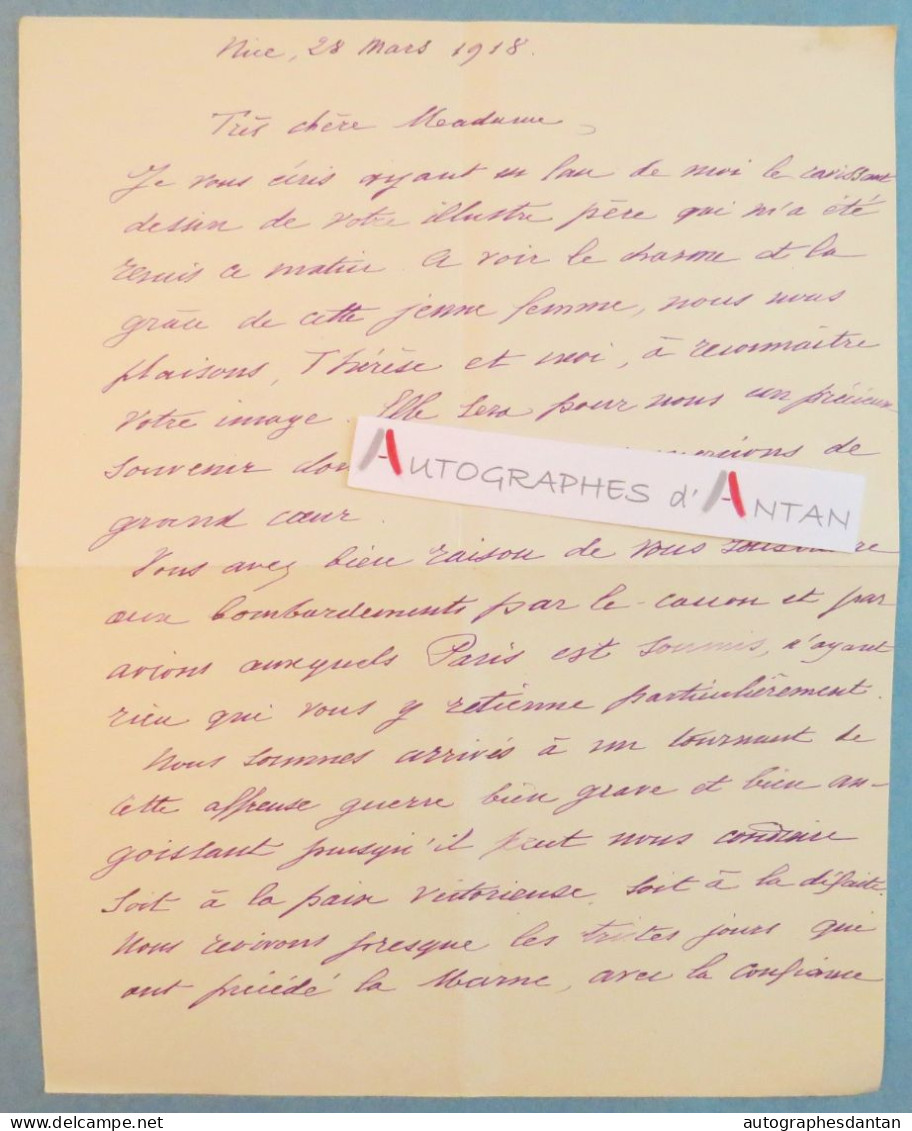 Nice, 28 Mars 1918.
Très chère Meadame,
Je vous écris ayant en face de moi le ravissant
dessin de votre illustre père qui m'a été
remis ce matin. A voir le charme et la
grâce de cette jeune femme, nous nous
plaisons, Thérèse et moi, à reconnaître
votre image. Elle sera pour nous un précieux
souvenir don de
grand cœur.
AUTOGRAPHES d'ANTAN
Vous avez bien raison de vous soustraire
aux bombardements par le canon et par
avions auxquels Paris est soumis, n'ayant
rien qui vous y retienne particulièrement.
Nous sommes arrivés à un tournant de
cette affreuse guerre bien grave et bien an-
goissant puisqu'il peut nous conduire
soit à la paix victorieuse, soit à la défaite.
Nous revivons presque les tristes jours qui
ont précédé la Marne, avec la confiance
delcampe.net
autographesdantan